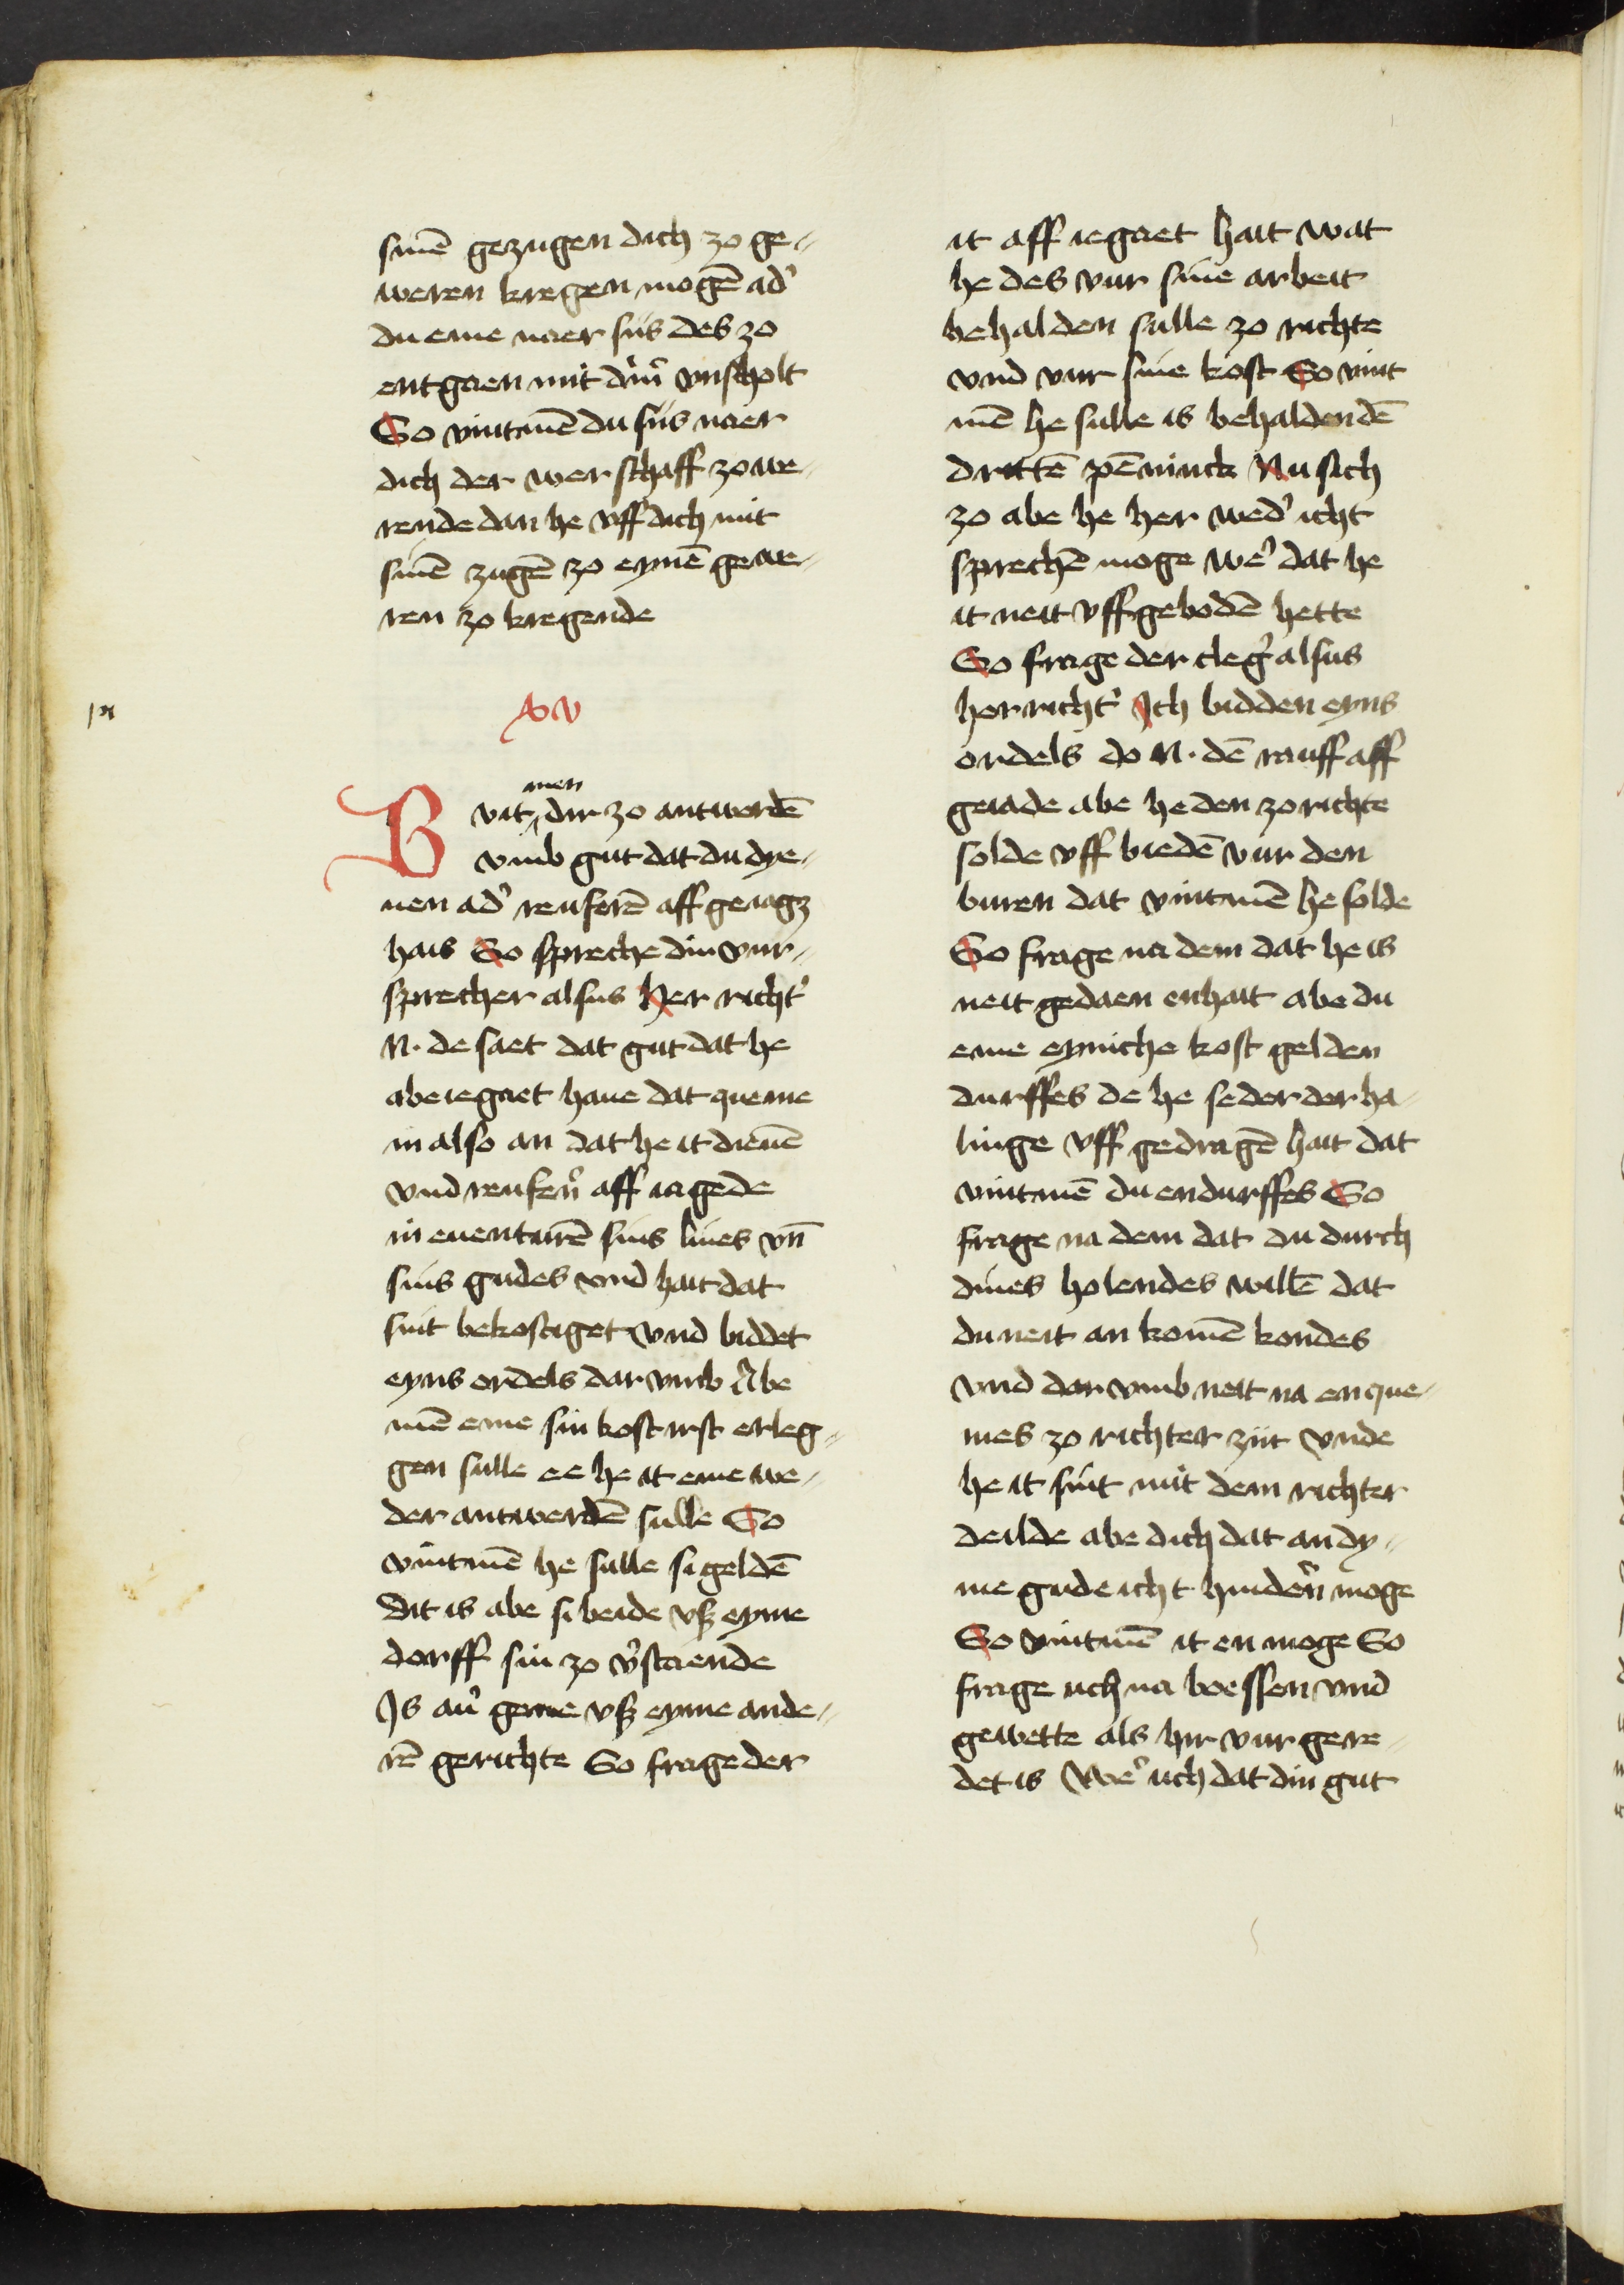 sinē gezugen dich zo ge-
weren kregen mogē ad'
du eme naer siis des zo
entgaen mit dinr̄ vnscholt
So vintmē du siis naer
dich der werschaff zo we-
rende dan he vff dich mit
sinē zugē zo eynē gewe-
ren zo kregende
xv
Bvit men dir zo antwerdē
vmb gut dat du dye-
uen ad' reuferē aff geiagz
hais So spreche din vur-
sprecher alsus her richt'
N. de saet dat gut dat he
abeiegaet haue dat queme
in also an dat he it dieuē
vnd reufern̄ aff iagede
in euenturē sins liues vn̄
sins gudes vnd hait dat
sint bekostiget vnd biddet
eyns ordels dar vmb Abe
mē eme sin kost irst erleg-
gen sulle ee he it eme we-
der antwerdē sulle So
vintmē he sulle si geldē
Dit is abe si beide vß eyme
dorff sin zo v'staende
Is au' geme vß eyme ande-
rē gerichte So frage der
it aff iegaet hait wat
he des vur sine arbeit
behalden sulle zo richte
vnd vur sine kost So vint
mē he sulle is behalden dē
drittē pēninck Nu sich
zo abe he her wed' icht
sprechē moge we' dat he
it neit vffgebodē hette
So frage der cleg' alsus
her richt' Ich bidden eyns
ordels do N. dē rauff aff
geiade abe he den zo richte
solde vff biedē vur den
buren dat vintmē he solde
So frage na dem dat he is
neit gedaen enhait abe du
eme eyniche kost gelden
durffes de he seder der ha-
linge vff gedragē hait dat
vintmē du endurffes So
frage na dem dat du durch
dines holendes willē dat
du neit an komē kondes
vnd dar vmb neit na enque-
mes zo richter ziit vnde
he it sint mit dem richter
deilde abe dich dat an dy-
me gude icht hindern̄ moge
So vintmē it en moge So
frage uch na boessen vnd
gewette als hir vur gere-
det is We' uch dat din gut